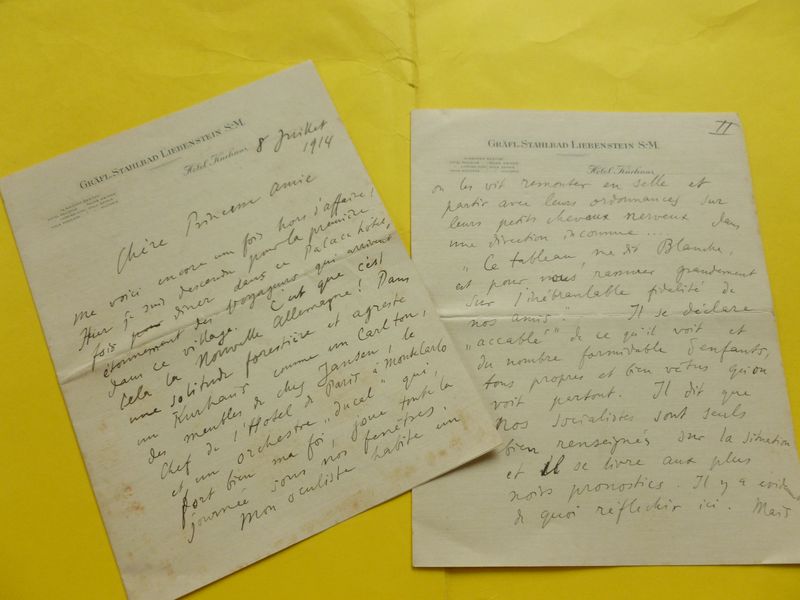 GRÄFL. STAHLBAD LIEBENSTEIN S:M.
Hôtel Kurhaus
8 Juillet
1914
Chère Princesse amie
me voici encore une fois hors d'affaire!
Hier je suis descendu pour la première
fois pour dîner dans ce Palace hôtel,
étonnement des voyageurs qui arrivent
dans ce village. C'est que c'est
cela la Nouvelle Allemagne! Dans
une solitude forestière et agreste
un Kurhaus comme un Carlton,
des meubles de chez Jansen, le
Chef de l'Hotel de Paris à MonteCarlo
et un orchestre "ducal" qui,
fort bien ma foi, joue toute la
journée sous nos fenêtres.
Mon oculiste habite un
II
GRÄFL. STAHLBAD LIEBENSTEIN S:M.
Hôtel Kurhaus
on les vit remonter en selle et
partir avec leurs ordonnances sur
leurs petits chevaux nerveux dans
une direction inconnue ....
"Ce tableau, me dit Blanche,
est pour nous rassurer grandement
sur l'inébranlable fidelité de
nos amis". Il se déclare
"accablé" de ce qu'il voit et
du nombre formidable d'enfants,
tous propres et bien vêtus qu'on
voit partout. Il dit que
nos socialistes sont seuls
bien renseignés sur la situation
et Il se livre aux plus
noirs pronostics. Il y a
de quoi réfléchir ici. Mais